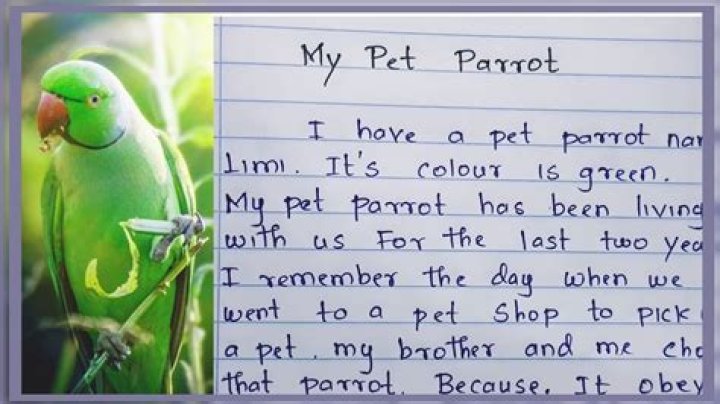 My Pet Parrot
I have a pet parrot nam
Limi. It's colour is green.
My pet parrot has been living
with us For the last two yea
I remember the day when we
went to a pet Shop to pick
a pet. my brother and me cho
that parrot. Because. It obey